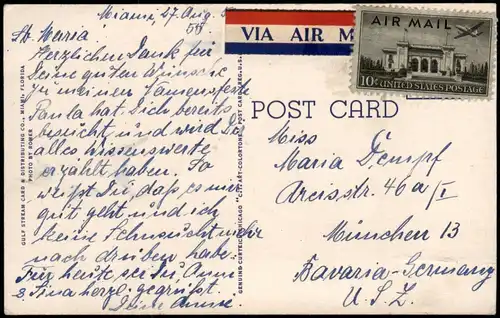 Miami, 27. Aug. 50
Lb. Maria
Herzlichen Dank für
Deine guten Wünsche
zu meinem Namensfeste
Paula hat Dich bereits
besucht und wird Dir
alles Wissenswerte
erzählt haben. So
weißt Du, daß es mir
gut geht und ich
keine Sehnsucht mehr
nach drüben habe.
Für heute sei Du, Anni
u. Tina herzl. gegrüßt.
Deine Anni.
GULF STREAM CARD & DISTRIBUTING CO., MIAMI, FLORIDA
PHOTO BY ROMER
GENUINE CURTEICH-CHICAGO "C.T. ART-COLORTONE" POST CARD (REG. U.S.
VIA AIR M
AIR MAIL
10¢ UNITED STATES POSTAGE
POST CARD
Miss
Maria Dempf
Arcis,str. 46a/I
München 13
Bavaria-Germany
U.S.Z.